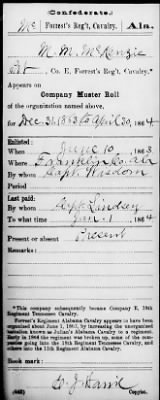 Confederate.
Mc | Forrest's Reg't, Cavalry. | Ala.
M. M. McKenzie
Pvt, Co. E, Forrest's Reg't, Cavalry.*
Appears on
Company Muster Roll
of the organization named above,
for Dec 31, 1863 to April 30, 1864
Enlisted:
When June 10, 1863
Where Franklin Co. Ala
By whom Capt. Wisdom
Period
Last paid:
By whom Capt Lindsey
To what time Jan. 1, 1864
Present or absent Present
Remarks:
*This company subsequently became Company E, 18th Regiment Tennessee Cavalry.
Forrest's Regiment Alabama Cavalry appears to have
been organized about June 1, 1863, by increasing the
organization known as Julian's Alabama Cavalry to a regiment.
Early in 1864 the regiment was broken up, some of the companies
going into the 18th Regiment Tennessee Cavalry, and
others into the Regiment Alabama Cavalry.
Book mark:
(642)
Copyist.